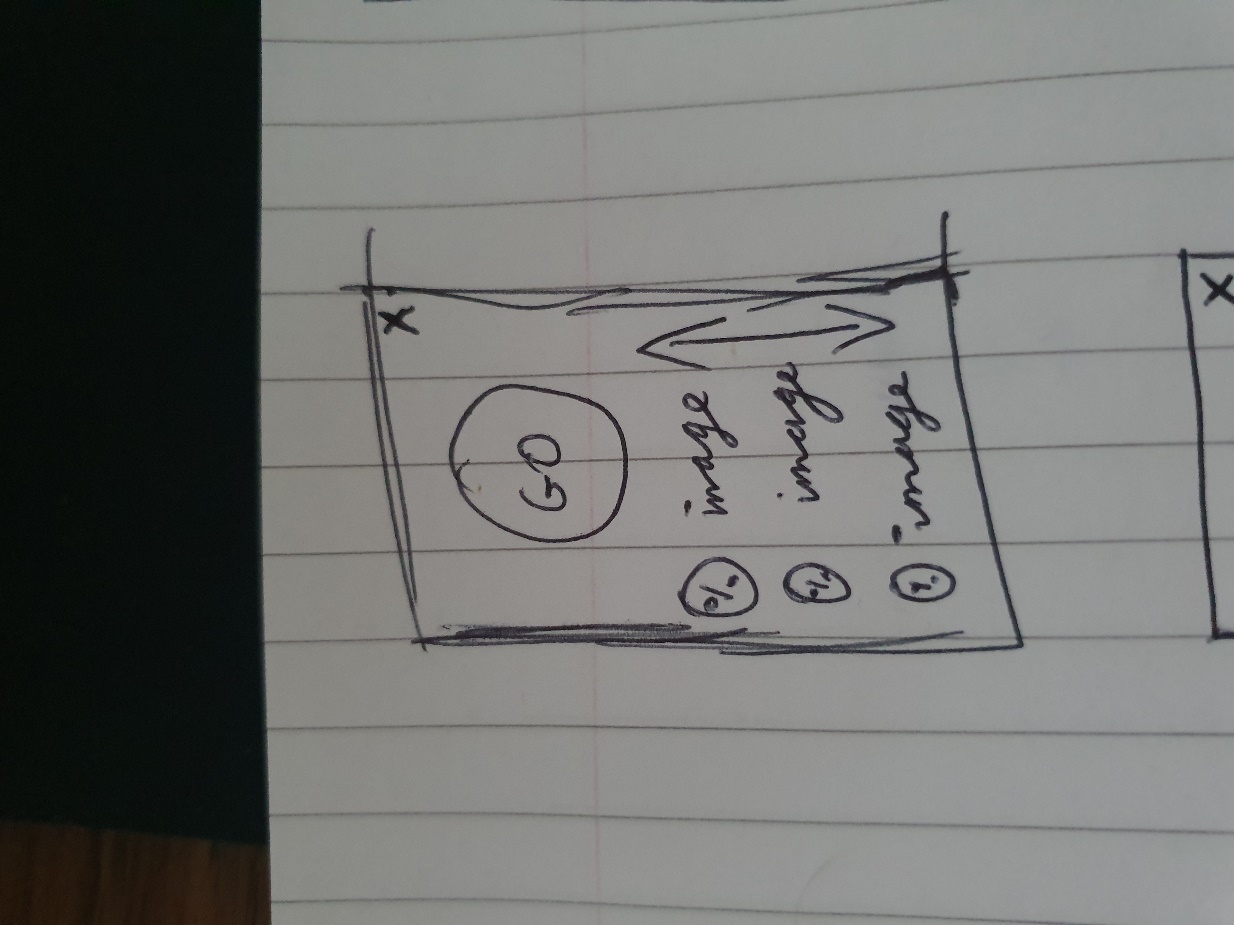 X
GO
% image
% image
% image
X